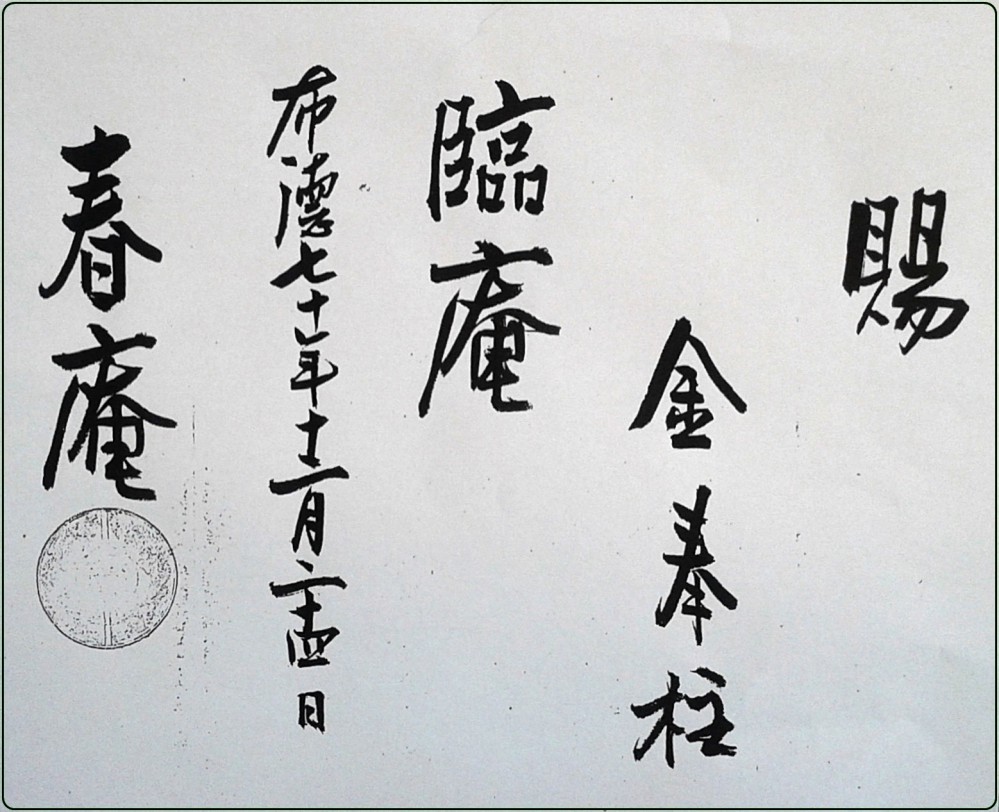 賜
金奉柱
臨庵
布德七十年十二月二十四日
春庵